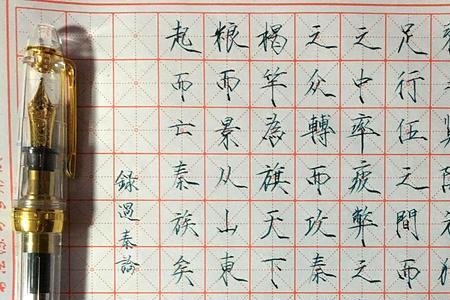 足行伍之間而
之中率疲弊之
之众轉而攻秦
揭竿為旗天下
粮而景从山東
起而亡秦族矣
録過秦論